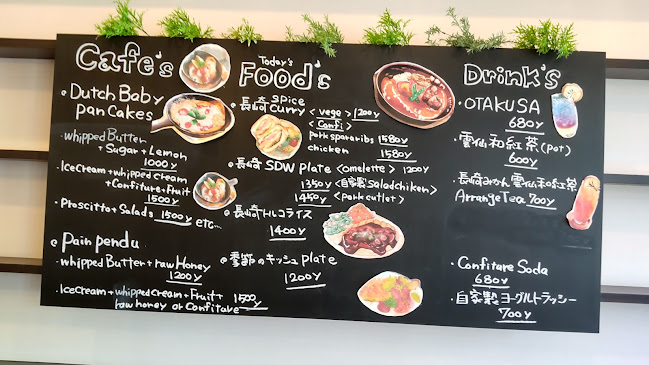 Cafe's
Dutch Baby
pancakes
・whipped Butter
+ Sugar + Lemon
1000y
・IceCream + whipped cream
+ Confiture + Fruit
1500y
・Proscitto + Salads 1500y etc...
Pain pendu
・whipped Butter + raw Honey
1200y
・IceCream + whipped cream + Fruit +
raw honey or Confitave 1500y
Today's
Food's
長崎 spice
curry <vege> 1200y
<Confi>
pork spararibs 1580y
chicken 1580y
長崎 SDW plate <omelette> 1200y
1350y <自家製 Saladchiken>
1450y <pork cutlet>
長崎トルコライス
1400y
季節のキッシュ plate
1200y
Drink's
・OTAKUSA
680y
・雲仙和紅茶(pot)
600y
・長崎みかん雲仙和紅茶
Arrange Tea 700y
・Confitare Soda
680y
・自家製ヨーグルトラッシー
700y